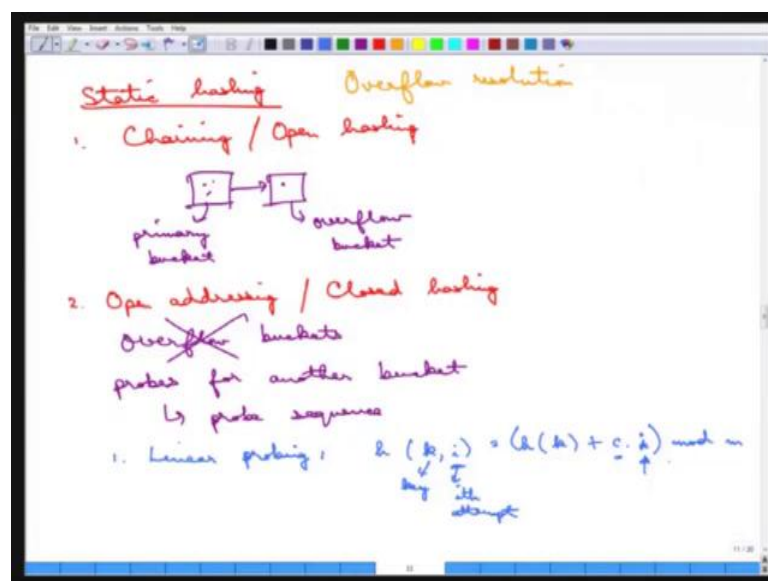 File Edit View Insert Actions Tools Help
Static hashing Overflow resolution
1. Chaining / Open hashing
primary bucket
overflow bucket
2. Open addressing / Closed hashing
overflow buckets
probes for another bucket
↳ probe sequence
1. Linear probing, h (k, i) = (h(k) + c. i) mod m
key
ith attempt
11 / 20
11